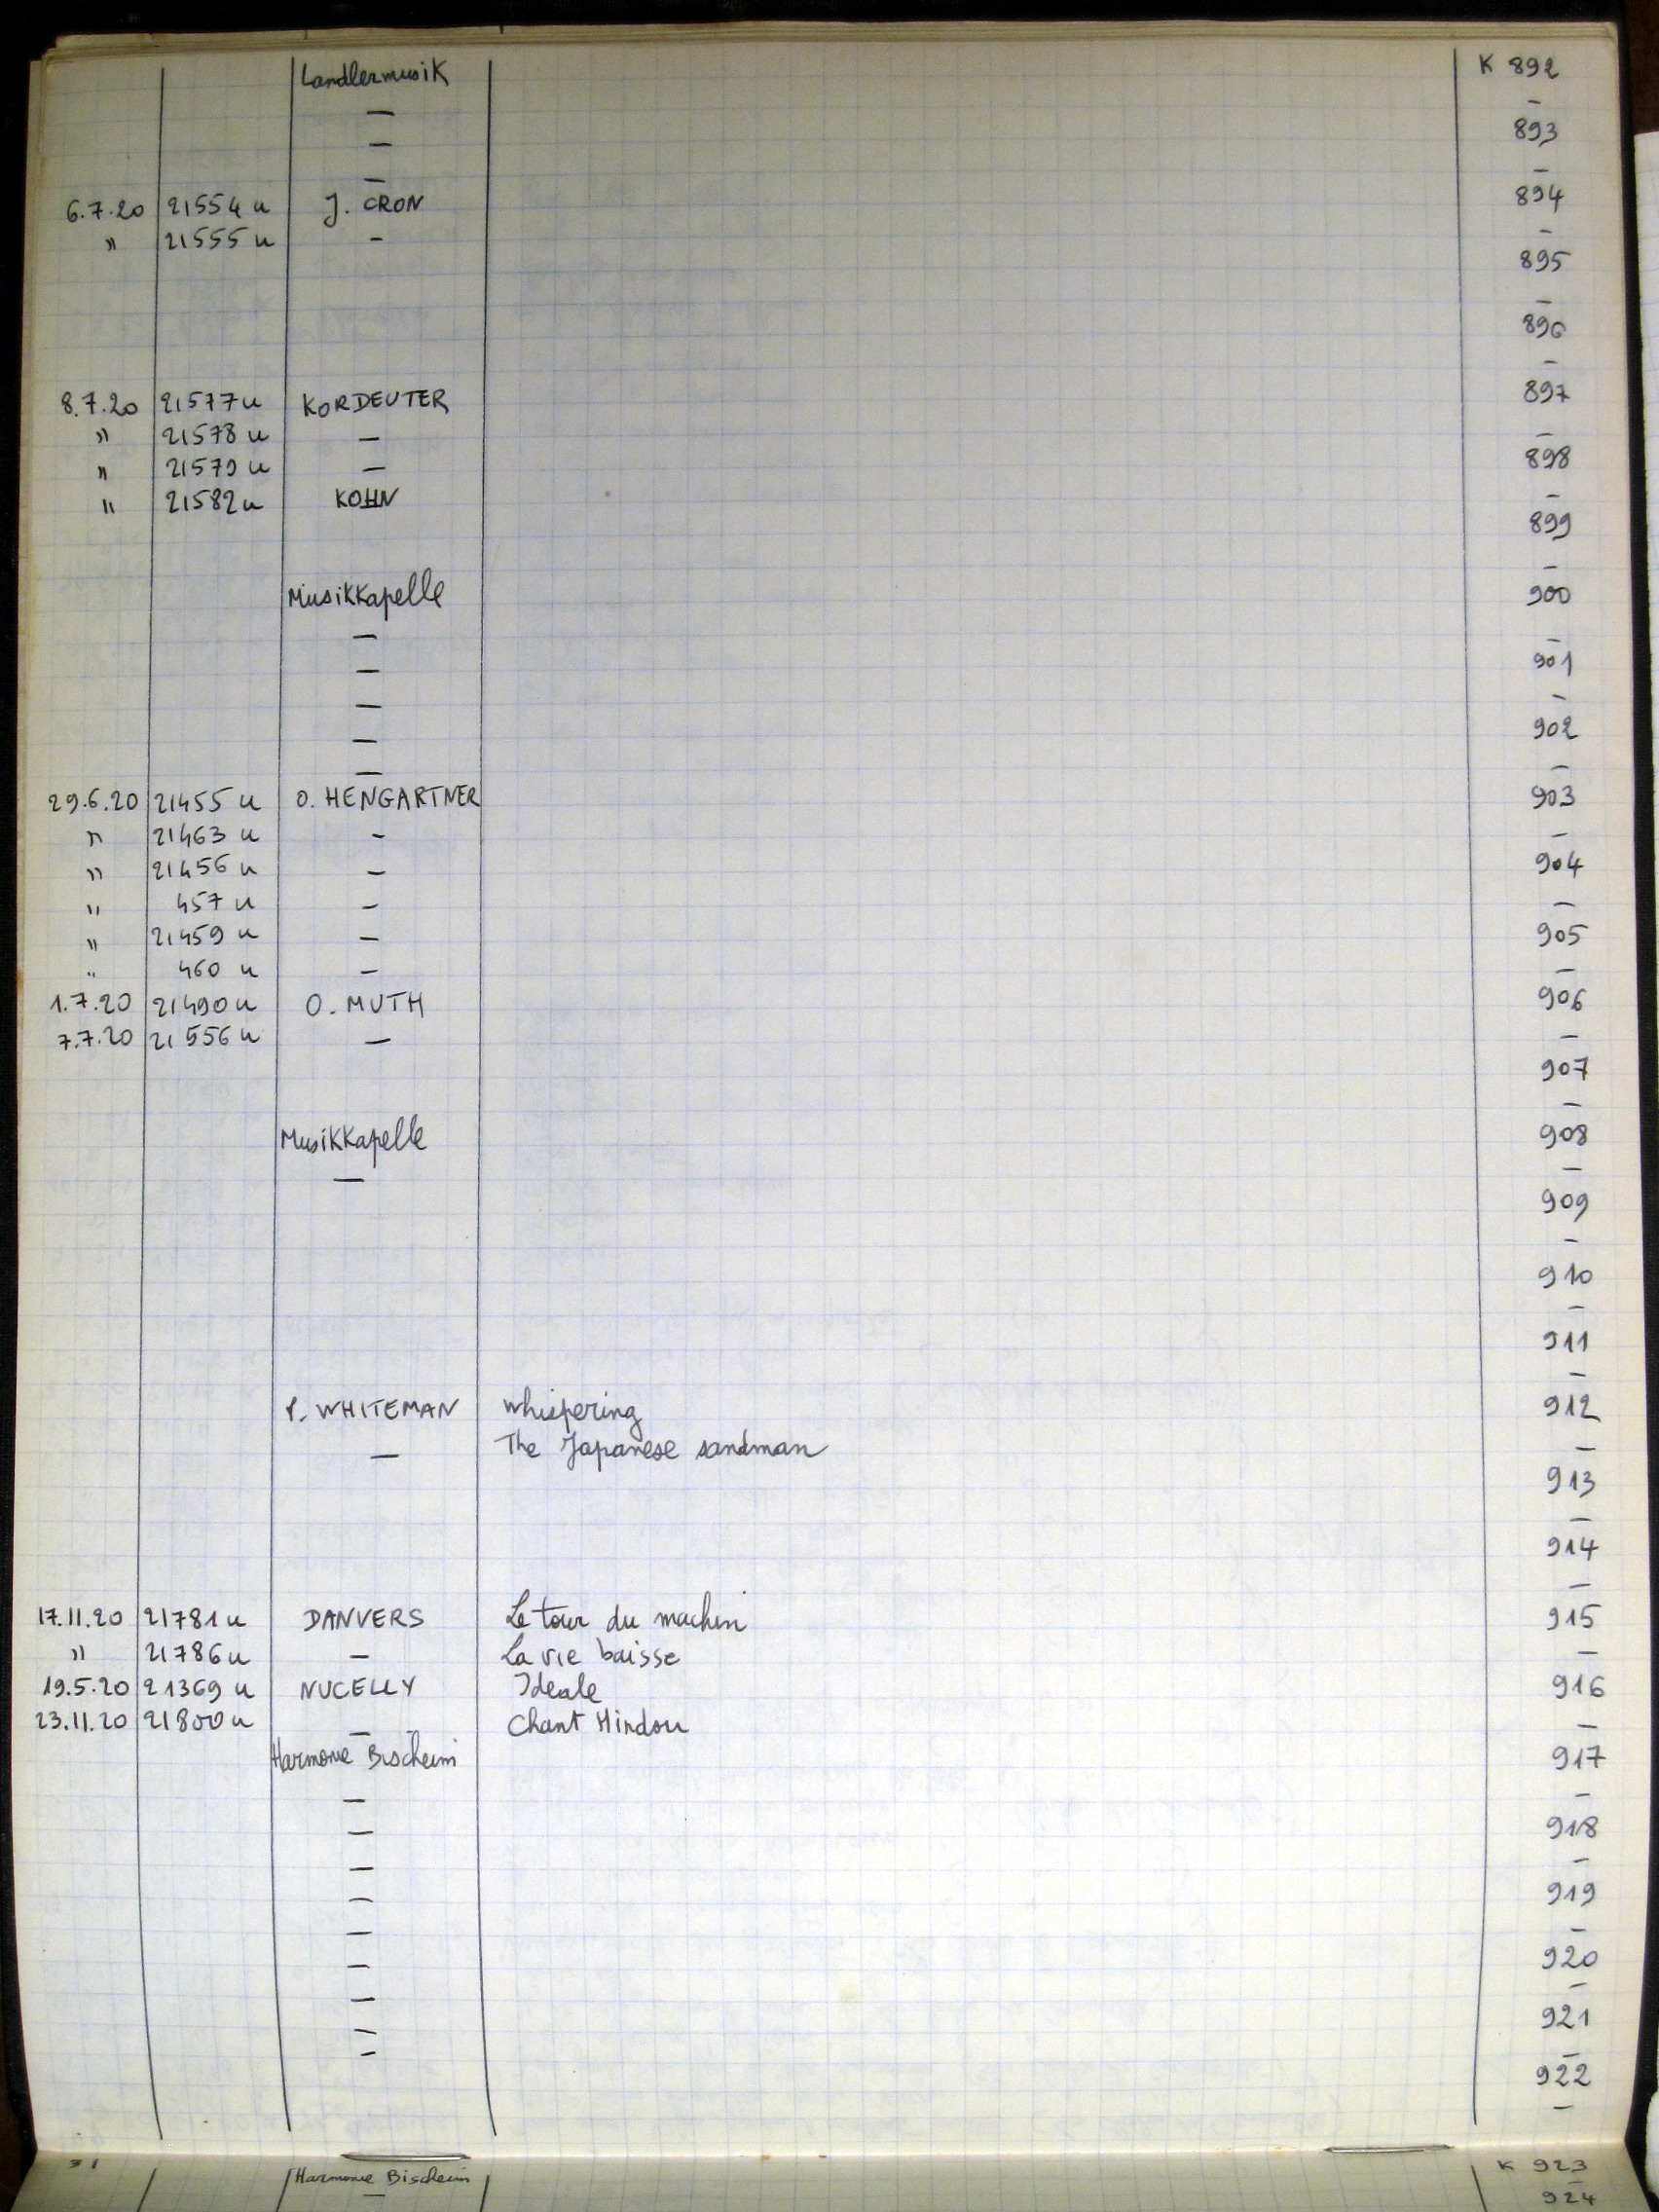 Landlermusik K 892
— —
— 893
— —
6.7.20 21554 u J. CRON 894
" 21555 u - —
895
—
896
—
8.7.20 21577 u KORDEUTER 897
" 21578 u — —
" 21579 u — 898
" 21582 u KOHN —
899
—
Musikkapelle 900
— —
— 901
— —
— 902
— —
29.6.20 21455 u O. HENGARTNER 903
" 21463 u - —
" 21456 u — 904
" 457 u — —
" 21459 u — 905
" 460 u — —
1.7.20 21490 u O. MUTH 906
7.7.20 21556 u — —
907
—
Musikkapelle 908
— —
909
—
910
—
911
—
P. WHITEMAN Whispering 912
— The Japanese sandman —
913
—
914
—
17.11.20 21781 u DANVERS Le tour du machin 915
" 21786 u — La vie baisse —
19.5.20 21369 u NUCELLY Ideale 916
23.11.20 21800 u — Chant Hindou —
Harmonie Bischeim 917
— —
— 918
— —
— 919
— —
— 920
— —
— 921
— —
922
—
31 Harmonie Bischeim K 923
— 924